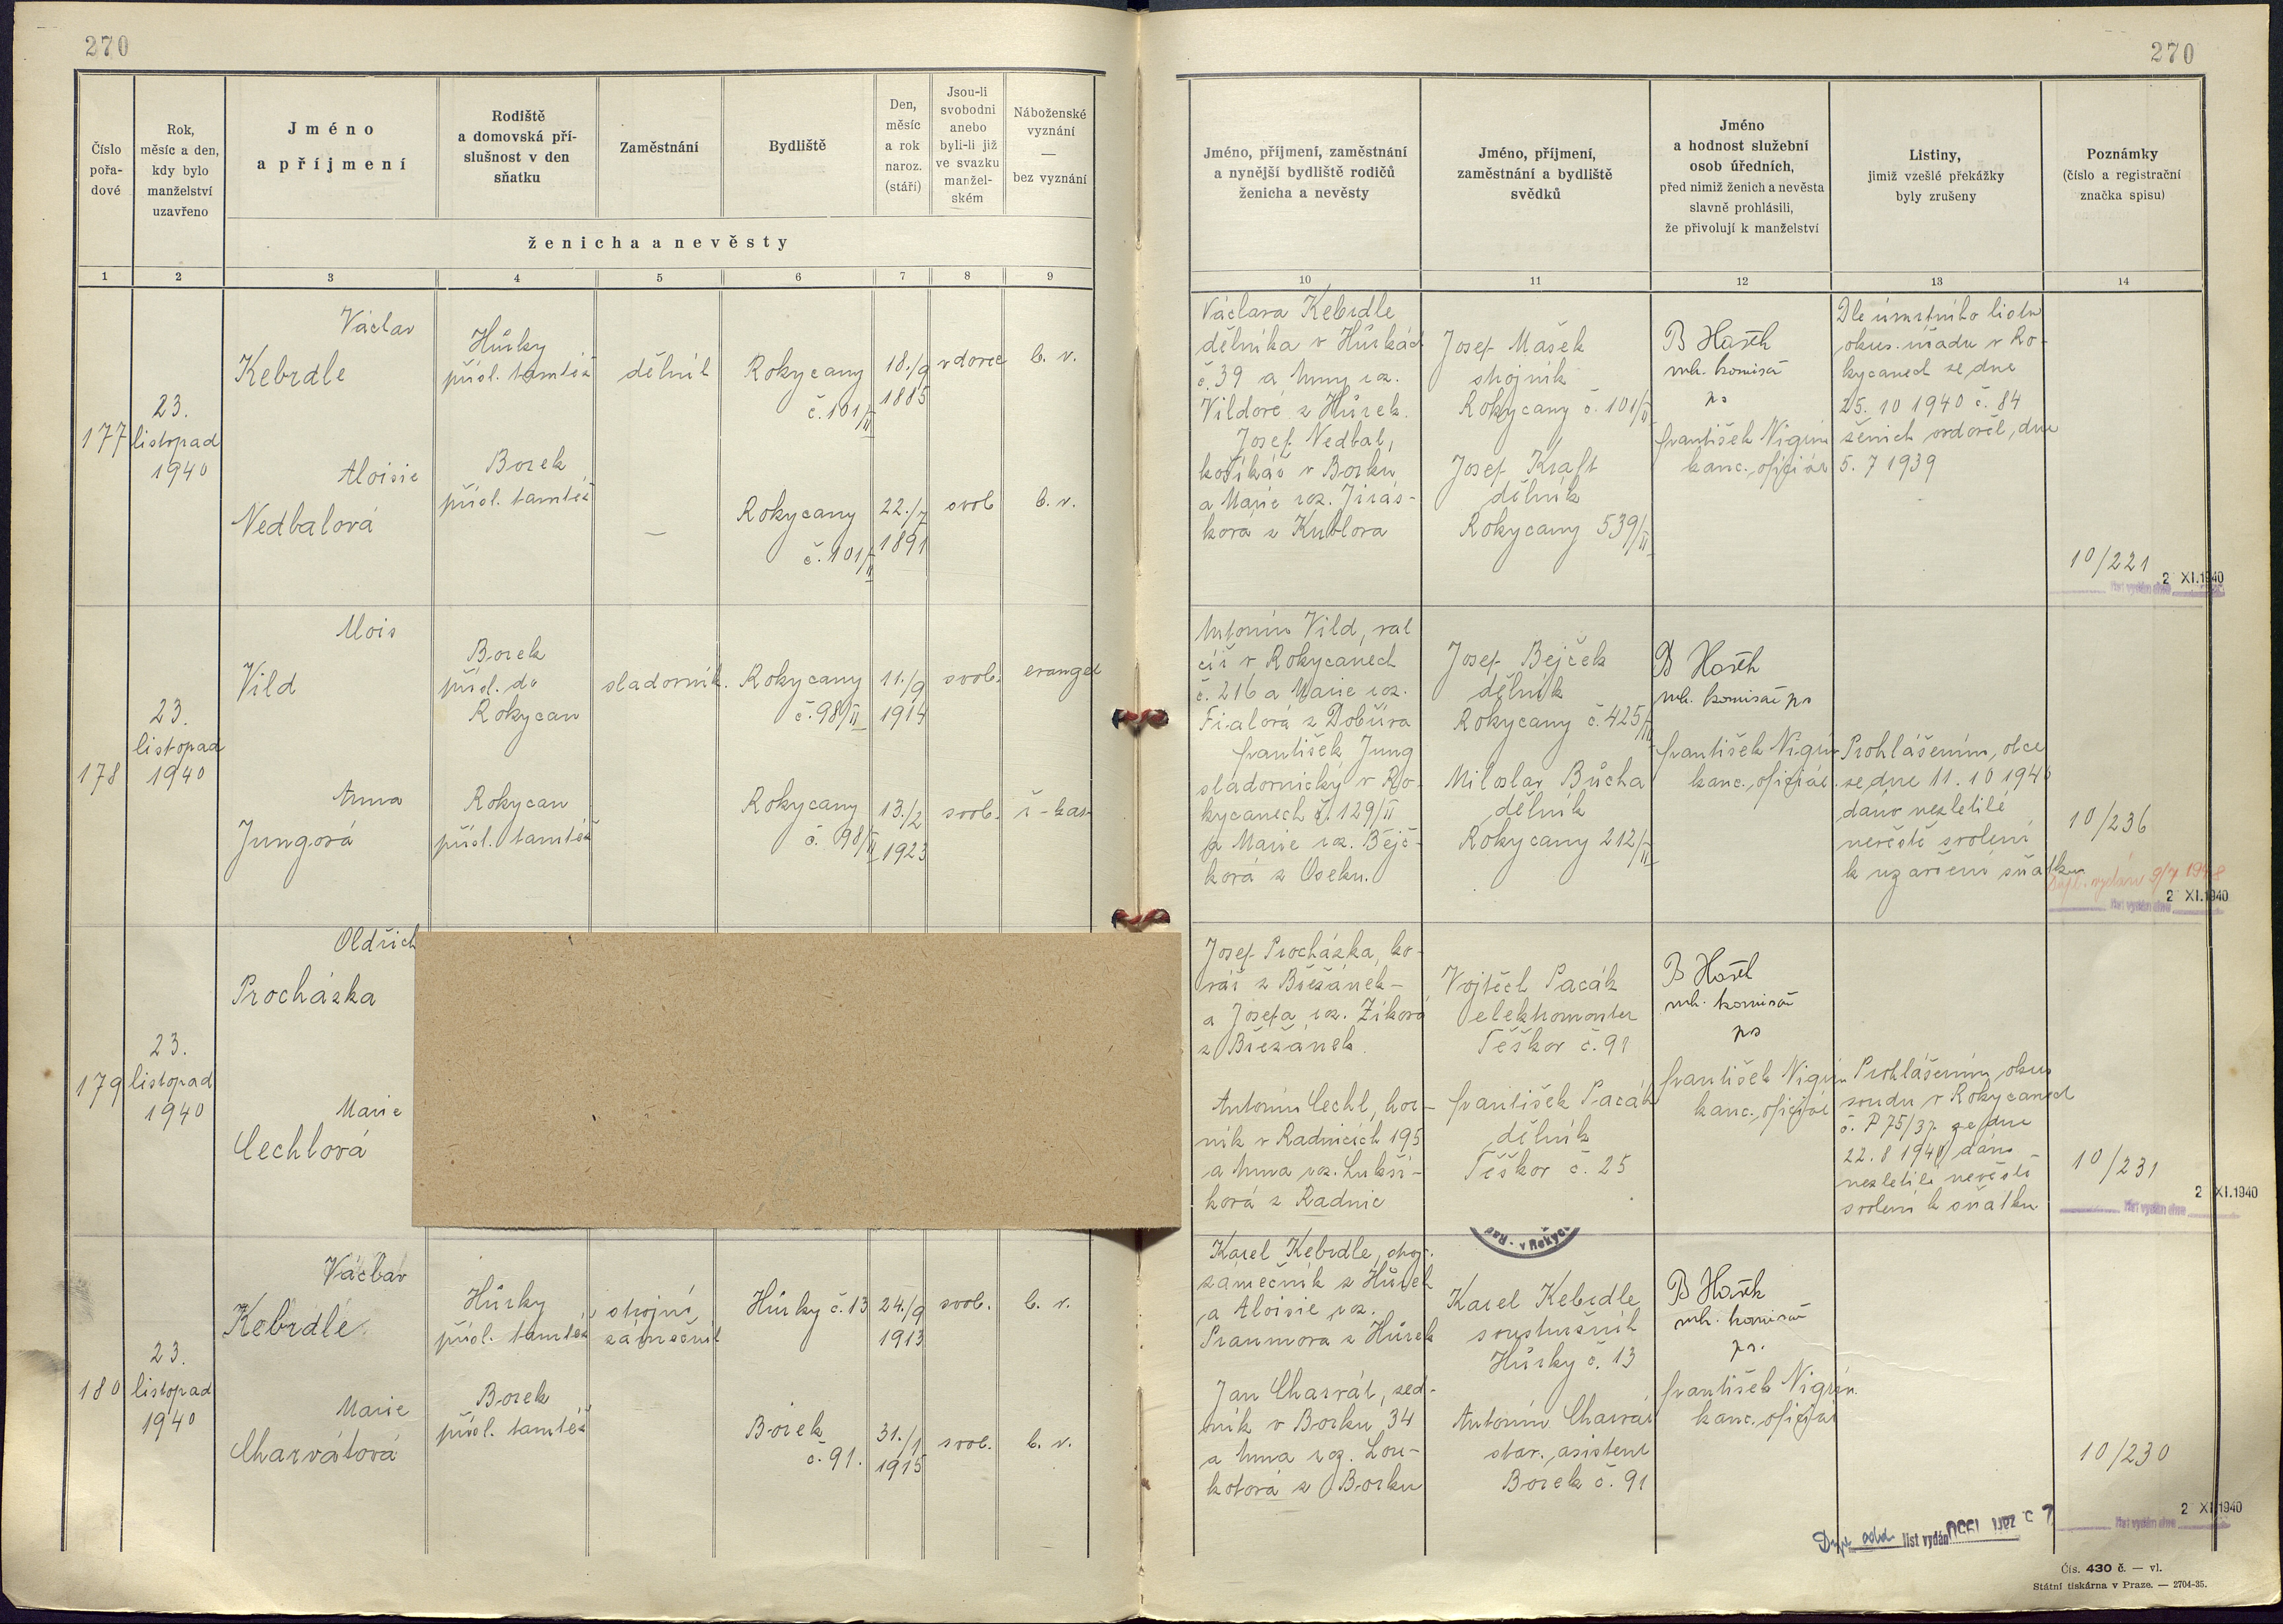 270
270
Číslo pořa-dové
Rok, měsíc a den, kdy bylo manželství uzavřeno
Jméno a příjmení
Rodiště a domovská pří-slušnost v den sňatku
Zaměstnání
Bydliště
Den, měsíc a rok naroz. (stáří)
Jsou-li svobodni anebo byli-li již ve svazku manžel-ském
Náboženské vyznání — bez vyznání
ženicha a nevěsty
1 2 3 4 5 6 7 8 9
Jméno, příjmení, zaměstnání a nynější bydliště rodičů ženicha a nevěsty
Jméno, příjmení, zaměstnání a bydliště svědků
Jméno a hodnost služební osob úředních, před nimiž ženich a nevěsta slavně prohlásili, že přivolují k manželství
Listiny, jimiž vzešlé překážky byly zrušeny
Poznámky (číslo a registrační značka spisu)
10 11 12 13 14
177
23.
listopad
1940
Václav
Kebrdle
Hůrky
přísl. tamtéž
dělník
Rokycany
č. 101/II
18./9
1885
vdovec
b. v.
Aloisie
Nedbalová
Borek
přísl. tamtéž
—
Rokycany
č. 101/II
22./7
1891
svob
b. v.
Václava Kebrdle
dělníka v Hůrkách
č. 39 a Anny roz.
Vildové z Hůrek.
Josef Nedbal,
košíkář v Borku
a Marie roz. Jirás-
ková z Kublova
Josef Mašek
strojník
Rokycany č. 101/II
Josef Kraft
dělník
Rokycany 539/II
vrch. komisař
František Nigrin
kanc. oficiál
Dle úmrtního listu
okres. úřadu v Ro-
kycanech ze dne
25. 10 1940 č. 84
ženich ovdověl, dne
5. 7 1939
10/221
2 XI.1940
list vydán dne
178
23.
listopad
1940
Alois
Vild
Borek
přísl. do
Rokycan
sladovník.
Rokycany
č. 98/II
11./9
1914
svob.
evangel
Anna
Jungová
Rokycan
přísl. tamtéž
Rokycany
č. 98/II
13./2
1923
svob.
Antonín Vild, val
cíř v Rokycanech
č. 216 a Marie roz.
Fialová z Dobříva
František Jung
sladovnický v Ro-
kycanech č. 129/II
a Marie roz. Bejč-
ková z Oseku.
Josef Bejček
dělník
Rokycany č. 425/II
Miloslav Bůcha
dělník
Rokycany 212/II
vrch. komisař
František Nigrin
kanc. oficiál.
Prohlášením, otce
ze dne 11. 10 1940
dáno nezletilé
nevěstě svolení
k uzavření sňatku
10/236
2 XI.1940
list vydán dne
179
23.
listopad
1940
Oldřich
Procházka
Marie
Cechlová
Josef Procházka, ko-
vář z Břežánek-
a Josefa roz. Zíková
z Břežánek.
Antonín Cechl, hor-
ník v Radnicích 195
a Anna roz. Lukší-
ková z Radnic
Vojtěch Pacák
elektromonter
Těškov č. 91
František Pacák
dělník
Těškov č. 25
vrch. komisař
František Nigrin
kanc. oficiál
Prohlášením, okres
soudu v Rokycanech
č. P 75/37 ze dne
22. 8 1940 dáno
nezletilé nevěstě
svolení k sňatku
10/231
2 XI.1940
list vydán dne
180
23.
listopad
1940
Václav
Kebrdle
Hůrky
přísl. tamtéž
strojní
zámečník
Hůrky č. 13
24./9
1913
svob.
b. v.
Marie
Charvátová
Borek
přísl. tamtéž
Borek
č. 91.
31./1
1915
svob.
b. v.
Karel Kebrdle, stroj.
zámečník z Hůrek
a Aloisie roz.
z Hůrek
Jan Charvát, zed-
ník v Borku 34
a Anna roz. Lou-
kotová z Borku
Karel Kebrdle
soustružník
Hůrky č. 13
Antonín Charvát
stav. asistent
Borek č. 91
vrch. komisař
František Nigrin.
kanc. oficiál
10/230
2 XI.1940
list vydán dne
list vydán
Čís. 430 č. — vl.
Státní tiskárna v Praze. — 2704-35.